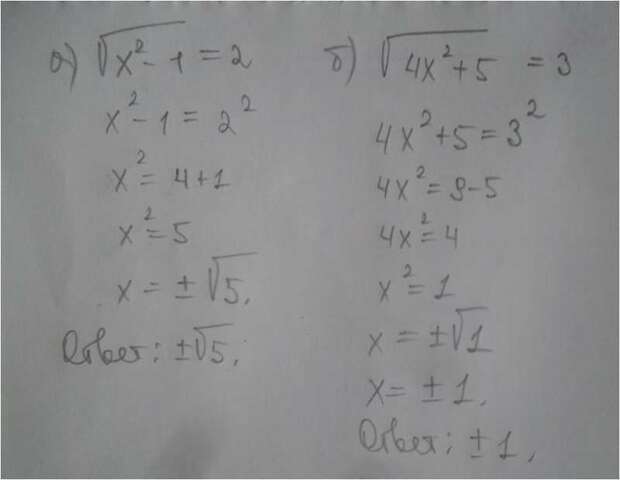 а) √x²-1 = 2
x²-1 = 2²
x² = 4+1
x² = 5
x = ±√5.
Ответ: ±√5.
б) √4x²+5 = 3
4x²+5 = 3²
4x² = 9-5
4x² = 4
x² = 1
x = ±√1
x = ±1.
Ответ: ±1.